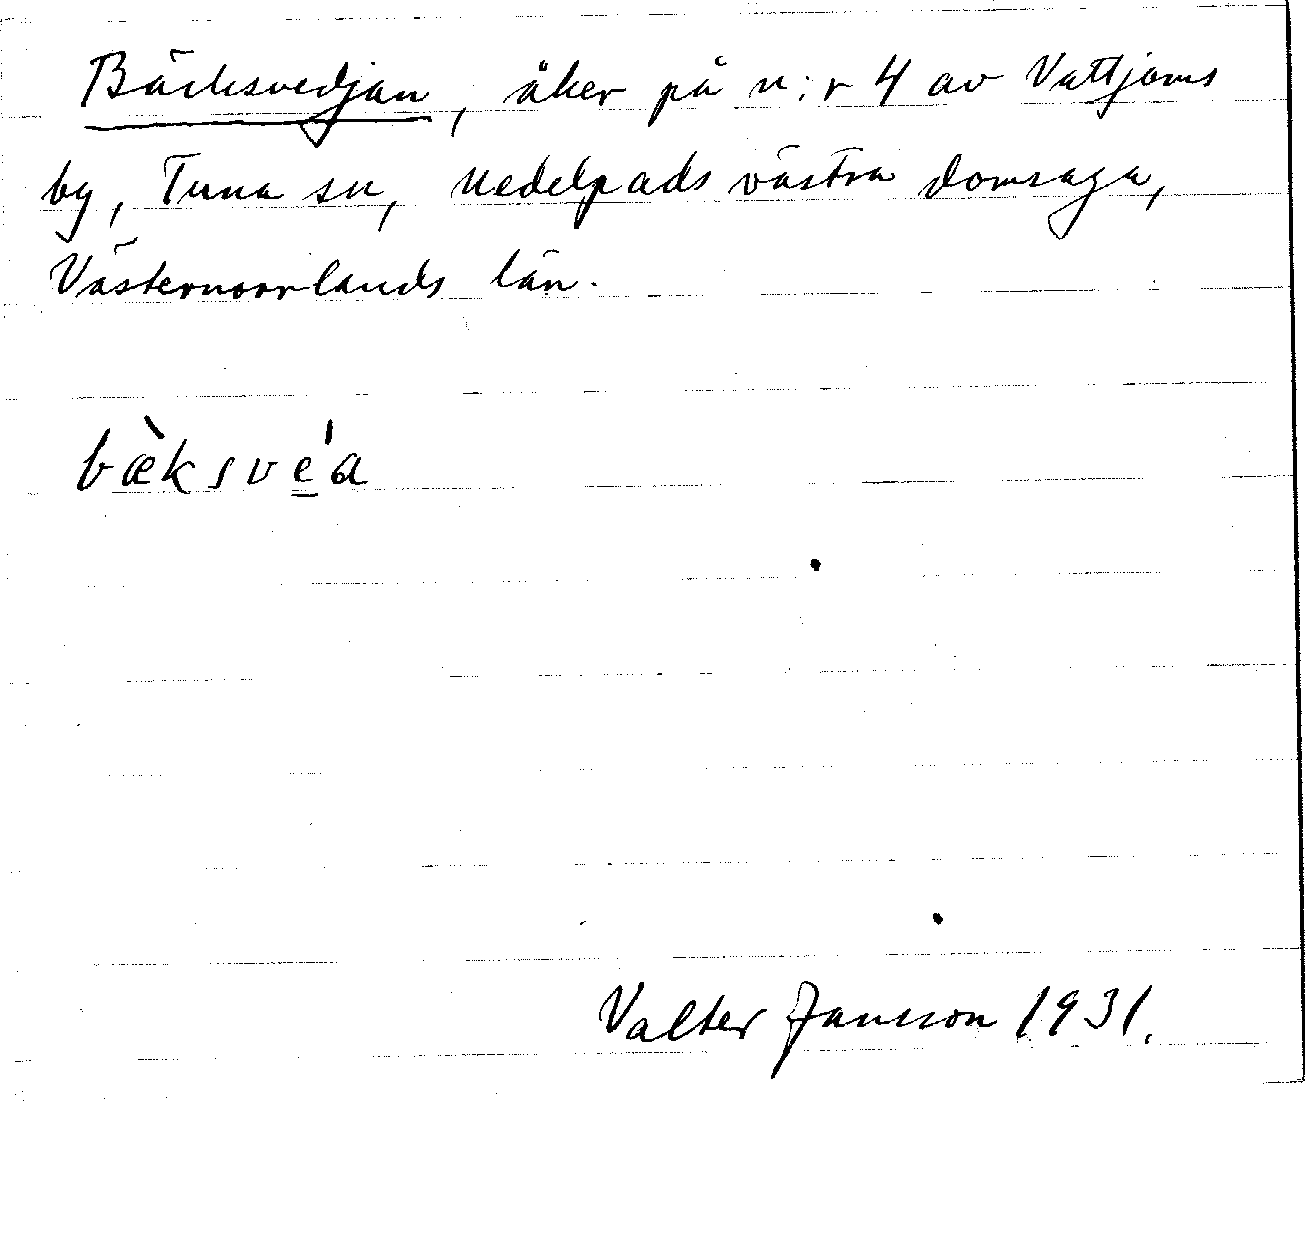 Bäcksvedjan, åker på n:r 4 av Vattjoms
by, Tuna sn, Medelpads västra domsaga,
Västernorrlands län.
bæ̀ksvé̲a
Valter Jansson 1931.